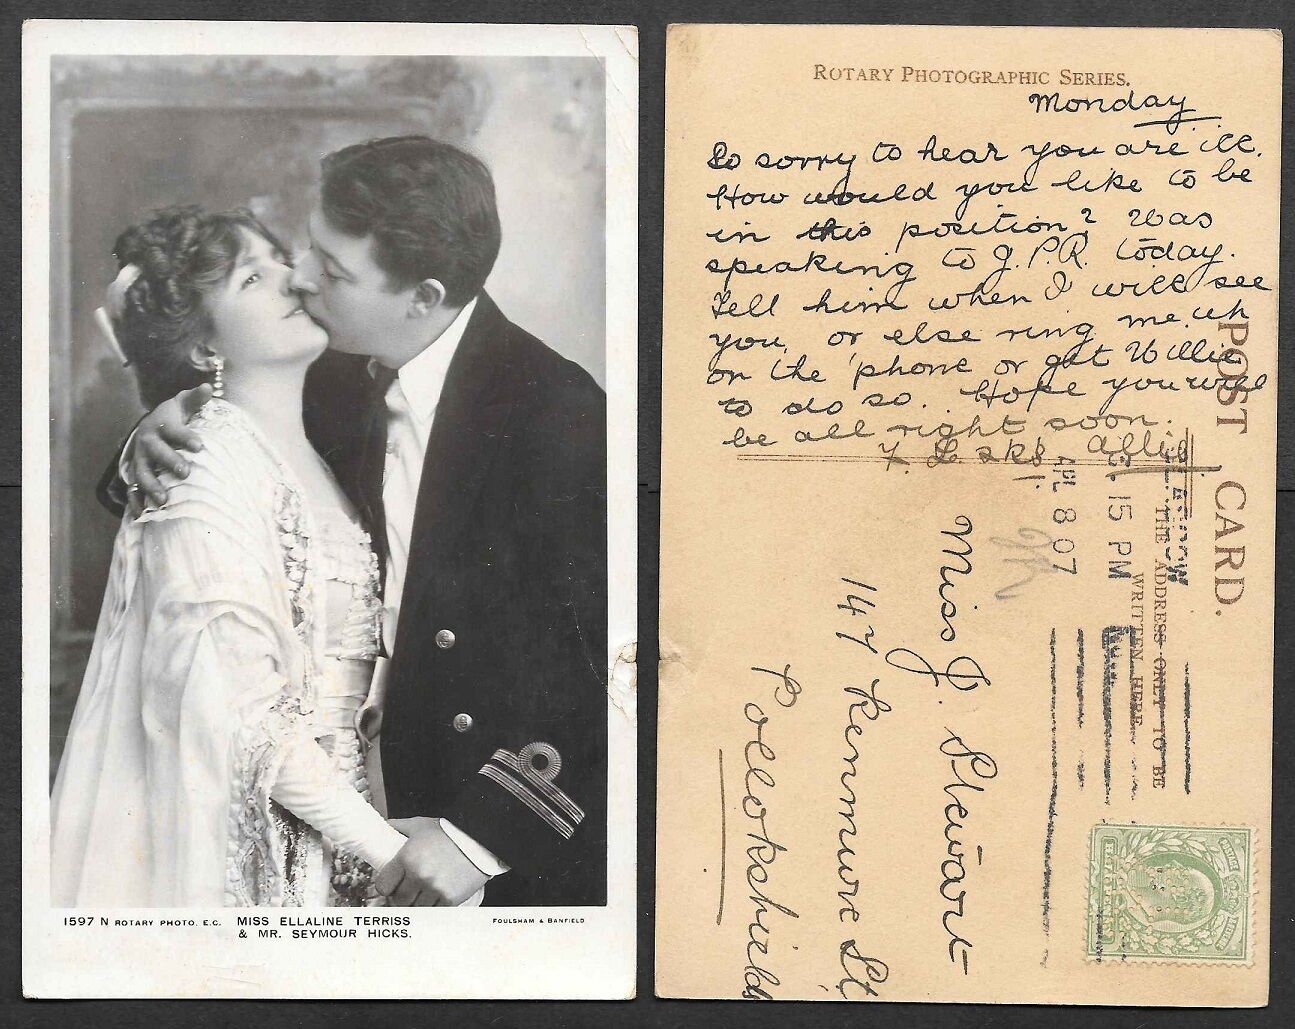 1597 N ROTARY PHOTO. E.C. MISS ELLALINE TERRISS FOULSHAM & BANFIELD
& MR. SEYMOUR HICKS.
ROTARY PHOTOGRAPHIC SERIES.
Monday
So sorry to hear you are ill.
How would you like to be
in this position? Was
speaking to J.P.R. today.
Tell him when I will see
you, or else ring me up
on the 'phone or get Willie
to do so. Hope you will
be all right soon.
POST CARD.
THE ADDRESS ONLY TO BE
WRITTEN HERE
GLASGOW
15 PM
APL 8 07
Miss J. Stewart
147 Kenmure St.
Pollokshields